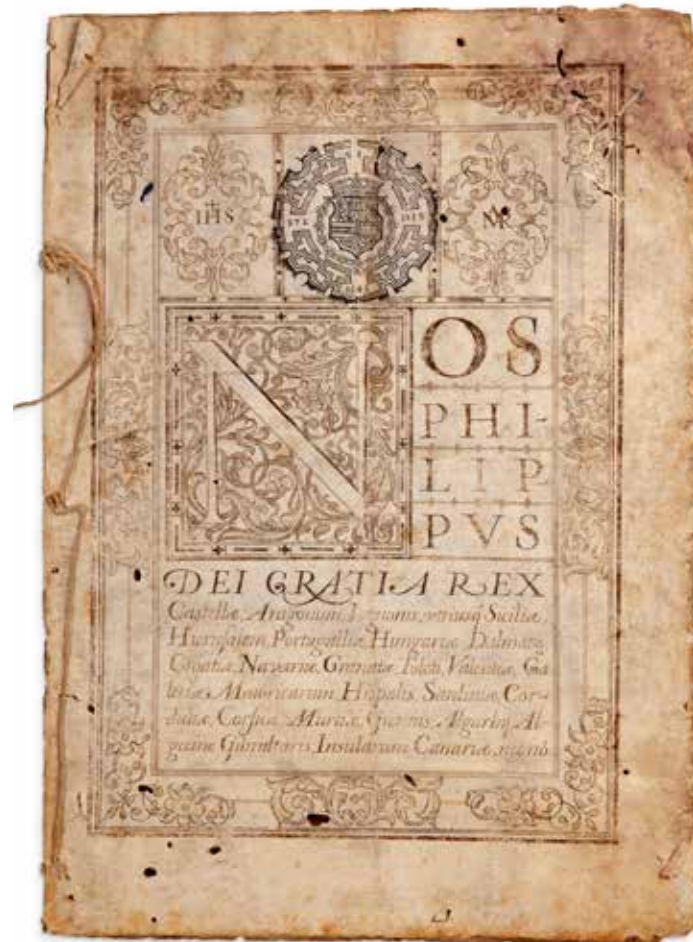 IHS
NOS
PHI-
LIPP
PVS
DEI GRATIA REX
Castellæ, Aragonum, Legionis, utriusq; Siciliæ,
Hierusalem, Portugalliæ, Hungariæ, Dalmatiæ,
Croatiæ, Navarræ, Granatæ, Toleti, Valentiæ, Ga
letiæ, Maioricarum, Hispalis, Sardiniæ, Cor-
dubæ, Corsicæ, Murciæ, Giennis, Algarbij, Al-
gezire, Gibraltaris, Insularum Canariæ, necnō